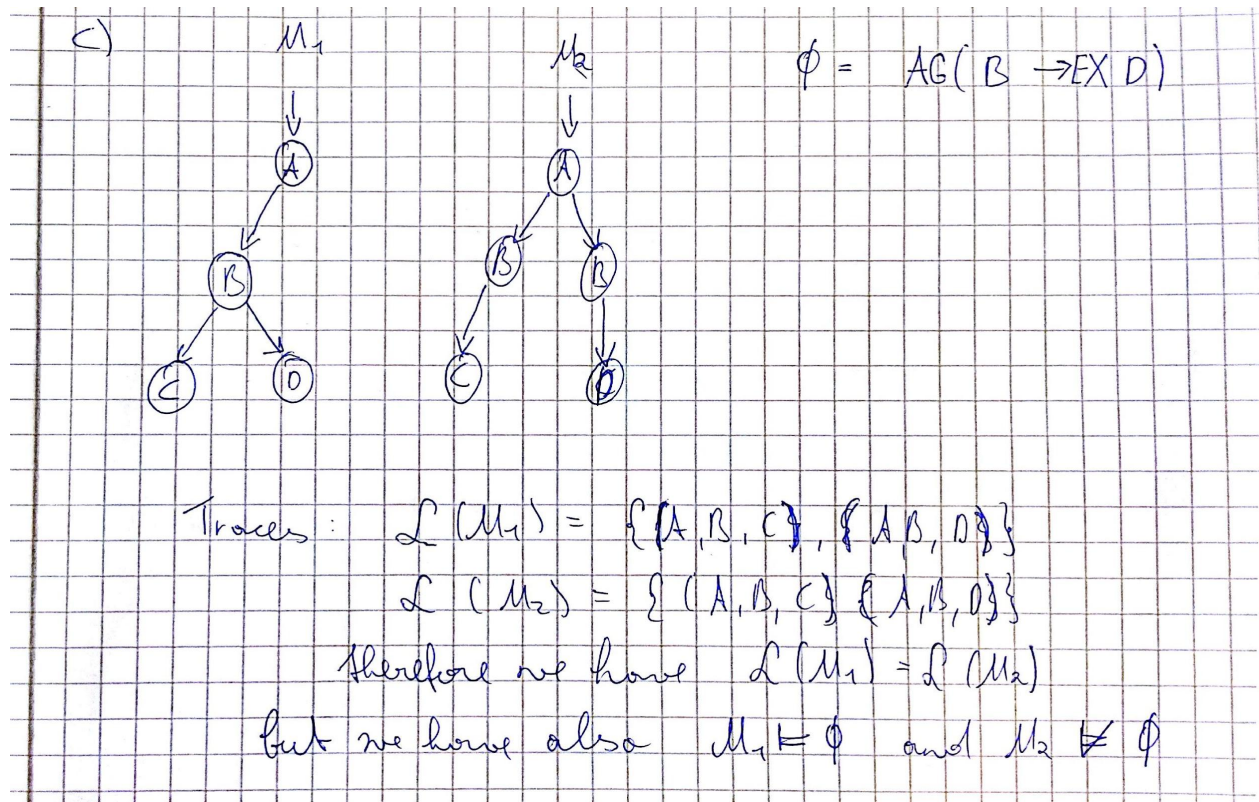 c) M₁ M₂ ϕ = AG( B → EX D)
A A
B B B
C D C D
Traces: ℒ (M₁) = {{A, B, C}, {A B, D}}
ℒ (M₂) = {(A, B, C} {A, B, D}}
therefore we have ℒ (M₁) = ℒ (M₂)
but we have also M₁ ⊨ ϕ and M₂ ⊭ ϕ